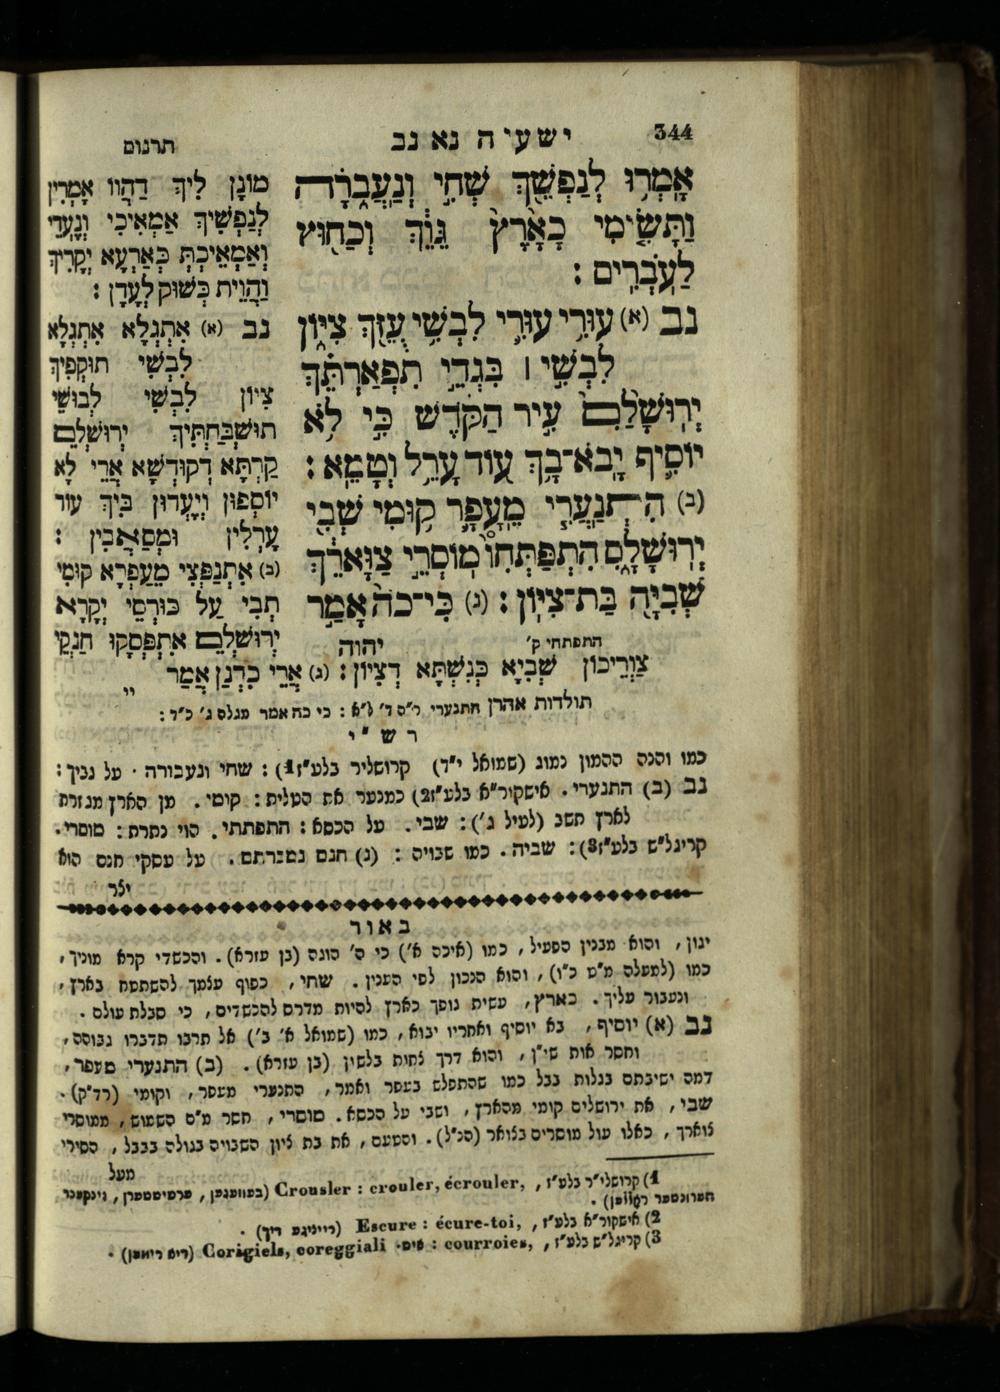 344
ישעיה נא נב
תרגום
אָמְר֤וּ לְנַפְשֵׁךְ֙ שְׁחִ֣י וְנַעֲבֹ֔רָה
וַתָּשִׂ֤ימִי כָאָ֙רֶץ֙ גֵּוֵ֔ךְ וְכַח֖וּץ
לַעֹבְרִֽים :
נב (א) עוּרִ֥י עוּרִ֛י לִבְשִׁ֥י עֻזֵּ֖ךְ צִיּ֑וֹן
לִבְשִׁ֣י ׀ בִּגְדֵ֣י תִפְאַרְתֵּ֗ךְ
יְרוּשָׁלִַ֙ם֙ עִ֣יר הַקֹּ֔דֶשׁ כִּ֣י לֹ֥א
יוֹסִ֛יף יָבֹא־בָ֥ךְ ע֖וֹד עָרֵ֥ל וְטָמֵֽא :
(ב) הִתְנַעֲרִ֧י מֵעָפָ֛ר ק֥וּמִי שְּׁבִ֖י
יְרוּשָׁלִָ֑ם הִֽתְפַּתְּחוּ֙ מוֹסְרֵ֣י צַוָּארֵ֔ךְ
שְׁבִיָּ֖ה בַּת־צִיּֽוֹן : (ג) כִּֽי־כֹה֙ אָמַ֣ר
התפתחי ק׳
יהוה
מוֹנָן לִיךְ דַהֲווֹ אָמְרִין
לְנַפְשִׁיךְ אַמְאִיכִי וְנֶעְדֵי
וְאַמְאֵיכְתְּ כְּאַרְעָא יְקָרִיךְ
וַהֲוֵית כְּשׁוּק לְעָדָן :
נב (א) אִתְגְלָא אִתְגְלָא
לִבְשִׁי תוּקְפִיךְ
צִיוֹן לִבְשִׁי לְבוּשֵׁי
תוּשְׁבַּחְתִּיךְ יְרוּשְׁלֵם
קַרְתָּא דְקוּדְשָׁא אֲרֵי לָא
יוֹסְפוּן וְיֶעְדוּן בִּיךְ עוֹד
עָרְלִין וּמְסַאֲבִין :
(ב) אִתְנַפְּצִי מֵעַפְרָא קוּמִי
תִּבִי עַל כּוּרְסֵי יְקָרָא
יְרוּשְׁלֵם אִתְפְּסָקוּ חַנְקֵי
צַוְרֵיכוֹן שְׁבִיָא כְּנִשְׁתָּא דְצִיוֹן : (ג) אֲרֵי כִּדְנַן אֲמַר
יי
תולדות אהרן התנערי ר״ס ד׳ ל״א : כי כה אמר מגלס ג׳ כ״ד :
רש״י
כמו והנה ההמון נמוג (שמואל י״ד) קרושליר בלע״ז1) : שחי ונעבורה · על גביך :
נב (ב) התנערי . אישקור״א בלע״ז2) כמנער את הטלית : קומי . מן הארץ מגזרת
לארץ תשב (לעיל ג׳) : שבי . על הכסא : התפתחי . הוי נתרת : מוסרי .
קריגל״ש בלע״ז3) : שביה . כמו שבויה : (ג) חנם נמכרתם . על עסקי חנם הוא
יצר
באור
יגון , והוא מבנין הפעיל , כמו (איכה א׳) כי ה׳ הוגה (בן עזרא) . והכשדי קרא מוניך ,
כמו (למעלה מ״ט כ״ו) , והוא הנכון לפי הענין . שחי , כפוף עצמך להשתטח בארץ ,
ונעבור עליך . כארץ , עשית גופך כארץ להיות מדרס להכשדים , כי סבלת עולם .
נב (א) יוסיף , בא יוסיף ואחריו יבוא , כמו (שמואל א׳ ב׳) אל תרבו תדברו גבוהה ,
וחסר אות שי״ן , והוא דרך צחות בלשון (בן עזרא) . (ב) התנערי מעפר ,
דמה ישיבתם בגלות בבל כמו שהתפלש בעפר ואמר , התנערי מעפר , וקומי (רד״ק) .
שבי , את ירושלים קומי מהארץ , ושבי על הכסא . מוסרי , חסר מ״ם השמוש , ממוסרי
צוארך , כאלו עול מוסרים בצואר (הנ״ל) . והטעם , את בת ציון השבויה בגולה בבבל , הסירי
מעל
1) קרושלי״ר בלע״ז , Crousler : crouler, écrouler, (בעוועגען , ערשיטטערן , זינקענד
הערונטער ראללען) .
2) אישקור״א בלע״ז , Escure : écure-toi, (רייניגע דיך) .
3) קריגל״ש בלע״ז , courroies, : Corigiels, coreggiali (דיא ריאמן) .